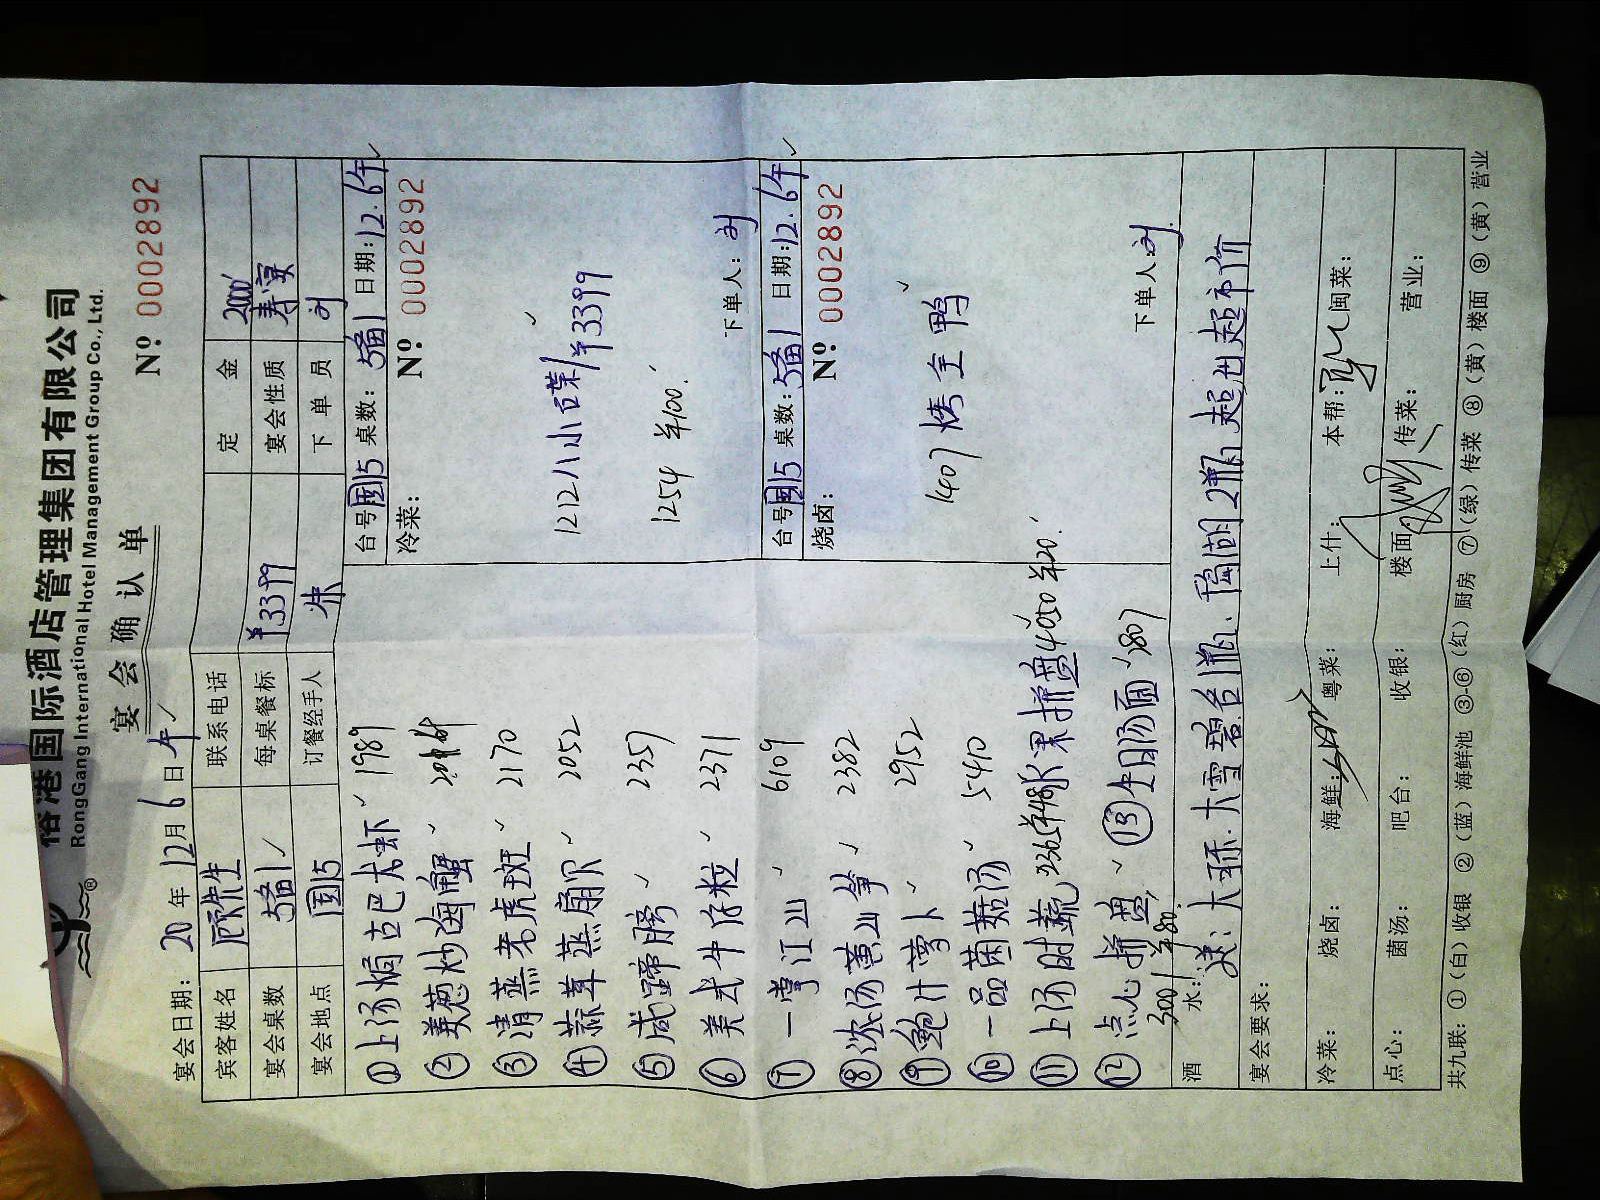 俗港国际酒店管理集团有限公司
RongGang International Hotel Management Group Co., Ltd.
宴会确认单
№ 0002892
宴会日期: 20 年 12月 6 日 午
宾客姓名 顾先生 联系电话 定金 2000
宴会桌数 1 每桌餐标 ¥3399 宴会性质 寿宴
宴会地点 国15 订餐经手人 朱 下单员 刘
①上汤焗古巴大虾 1989
②姜葱炒海蟹
③清蒸老虎斑 2170
④蒜茸蒸扇贝 2052
⑤咸蹄膀 2357
⑥美式牛仔粒 2371
⑦一掌江山 6109
⑧浓汤黄山笋 2382
⑨鲍汁萝卜 2952
⑩一品菌菇汤 5410
⑪上汤时蔬 水果拼盘 4050 ¥20
⑫点心拼盘 ⑬全日汤面 1807
3001 ¥80
台号 国15 桌数: 1 日期: 12.6午
冷菜: № 0002892
1212 八小碟 ¥3399
1254 ¥100
下单人: 刘
台号 国15 桌数: 1 日期: 12.6午
烧卤: № 0002892
1407 烤全鸭
下单人: 刘
酒水: 送: 大可乐. 大雪碧各1瓶. 2瓶 超出超市价
宴会要求:
冷菜: 烧卤: 海鲜: 粤菜: 上什: 本帮: 闽菜:
点心: 菌汤: 吧台: 收银: 楼面: 传菜: 营业:
共九联: ①(白)收银 ②(蓝)海鲜池 ③-⑥(红)厨房 ⑦(绿)传菜 ⑧(黄)楼面 ⑨(黄)营业